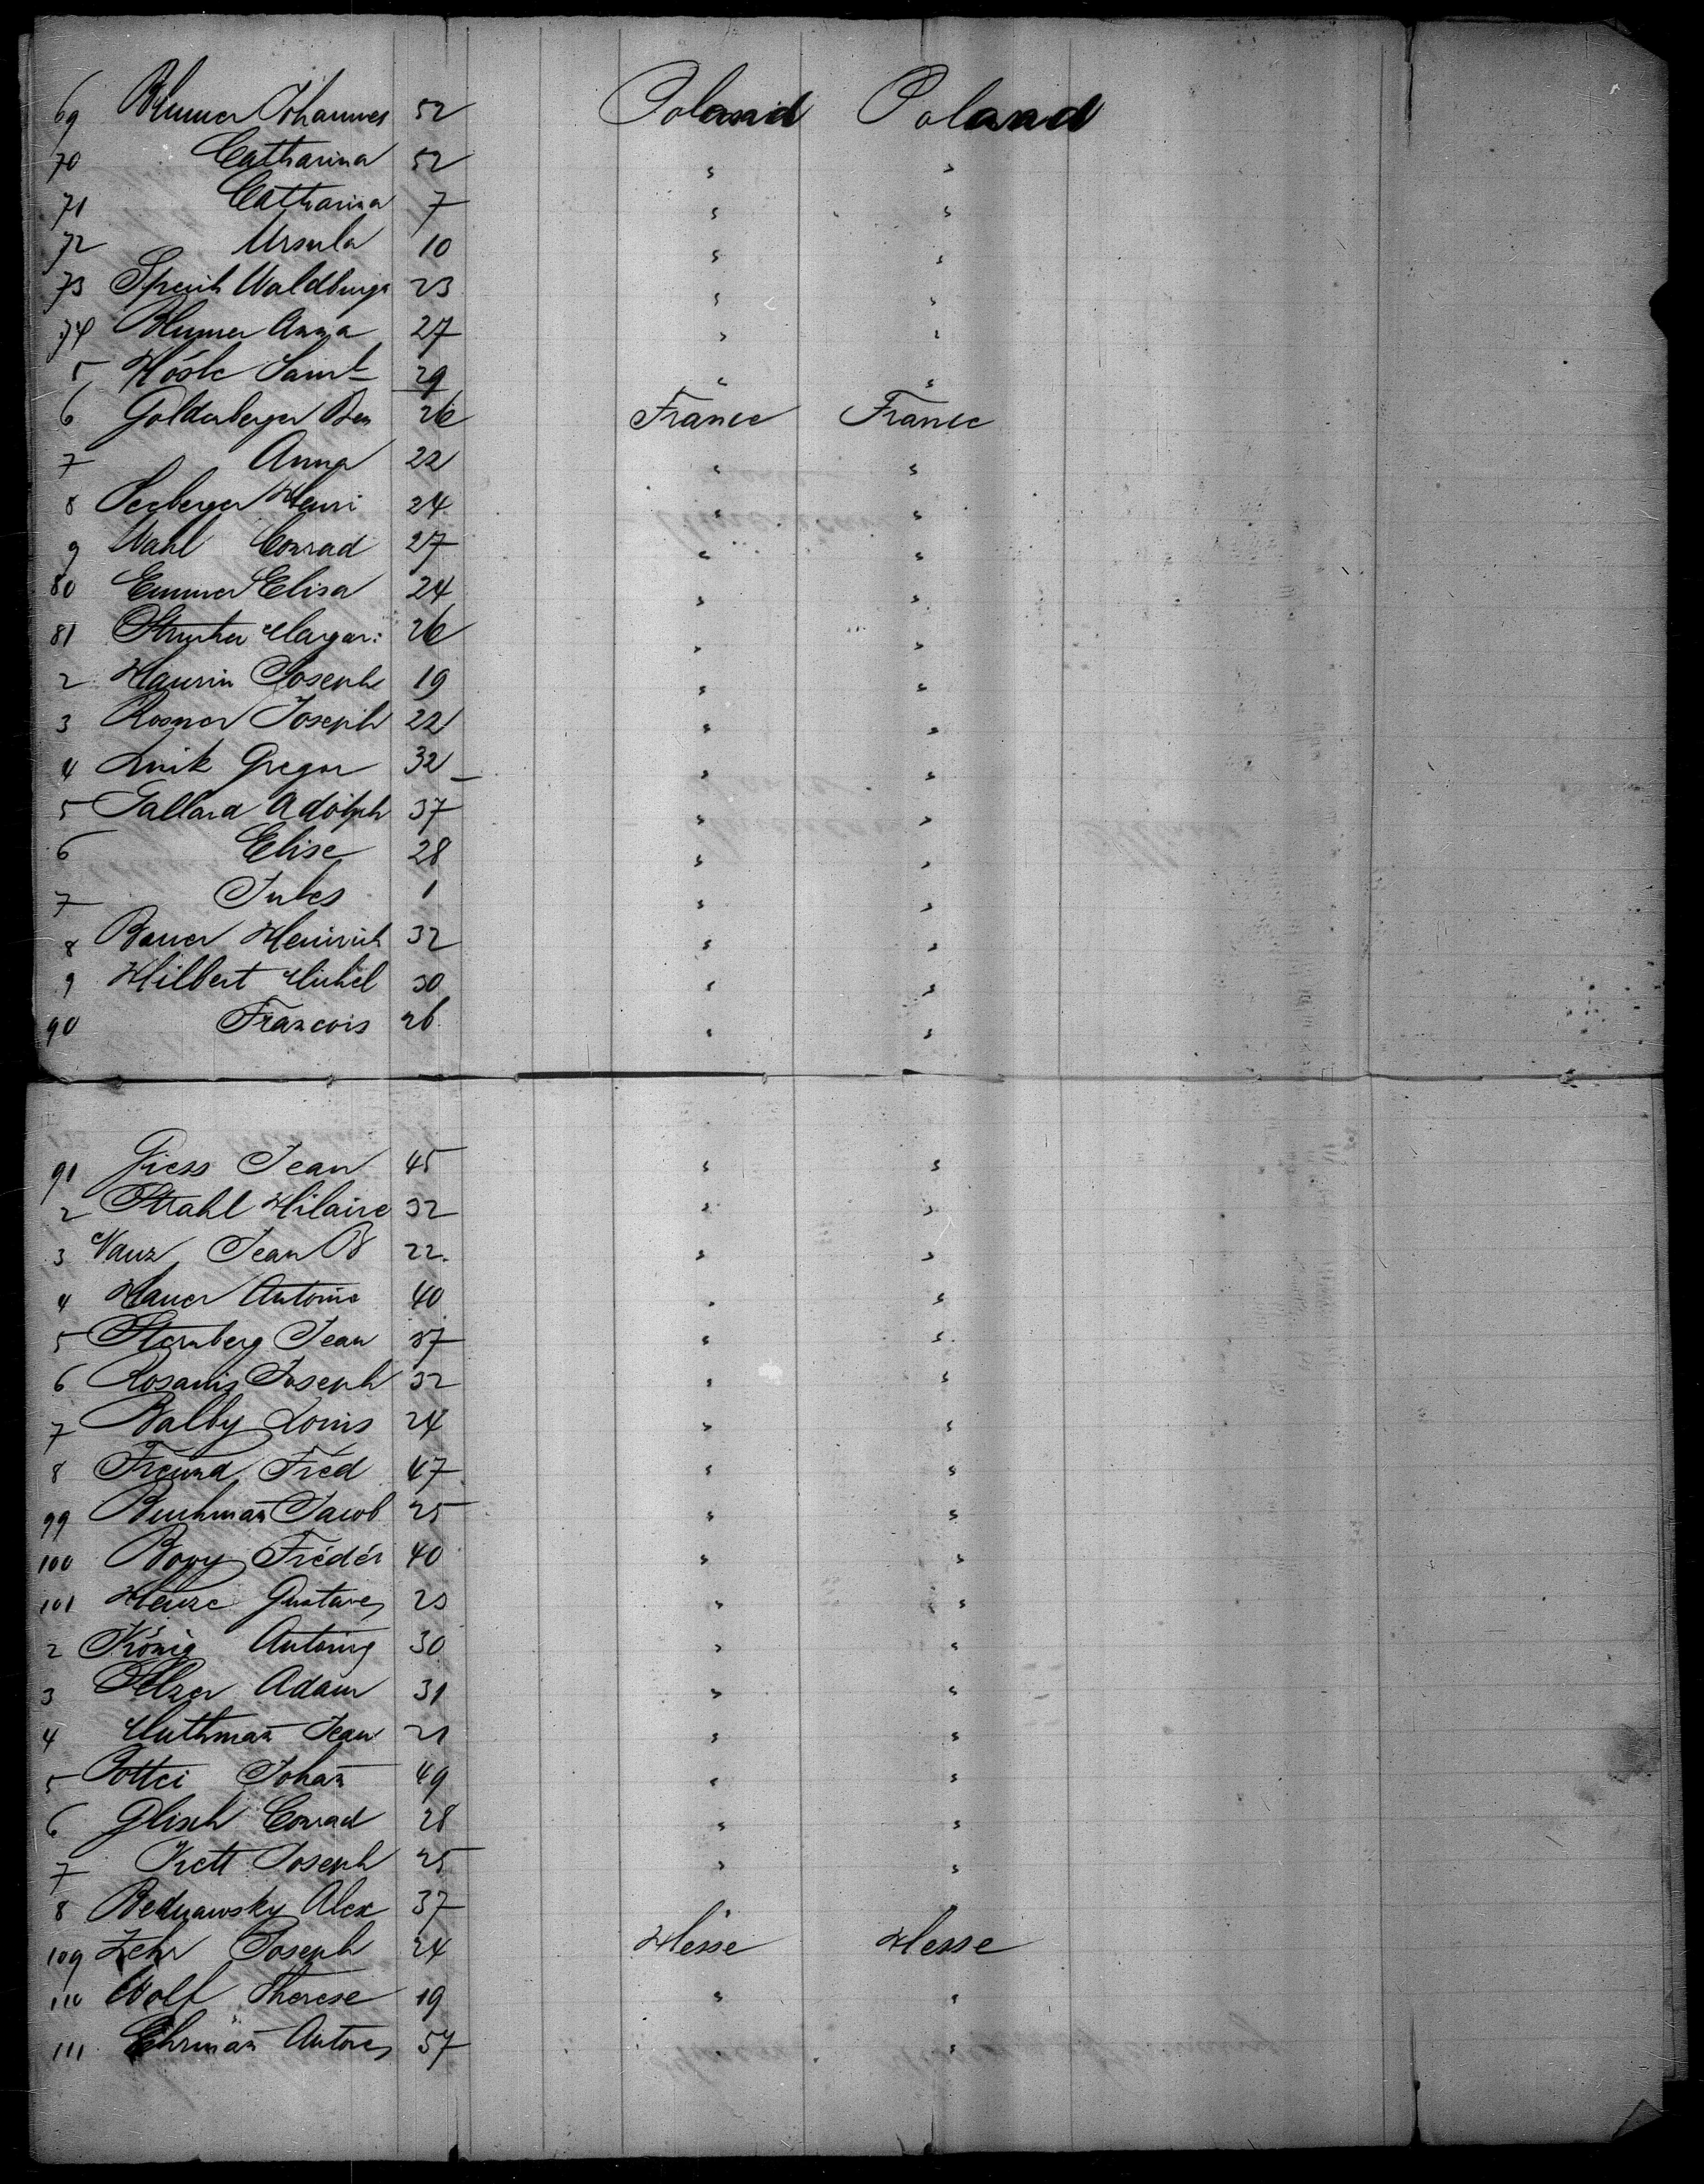 69 Blumer Johannes 52 Poland Poland
70 Catharina 52 " "
71 Catharina 7 " "
72 Ursula 10 " "
73 Waldburga 23 " "
74 Blumer Anna 27 " "
5 Hösle 29 " "
6 Goldenberger Ben 26 France France
7 Anna 22 " "
8 Seeberger Henri 24 " "
9 Wahl Conrad 27 " "
80 Emmer Elisa 24 " "
81 Margar: 26 " "
2 Haurin Joseph 19 " "
3 Rosner Joseph 22 " "
4 Gregor 32 " "
5 Gallard Adolph 37 " "
6 Elise 28 " "
7 Jules 1 " "
8 Bauer Heinrich 32 " "
9 Hilbert Michel 30 " "
90 Francois 26 " "
91 Giess Jean 45 " "
2 Strahl Hilaire 32 " "
3 Jean B 22. " "
4 Hauer Antoine 40 " "
5 Sternberg Jean 37 " "
6 Joseph 32 " "
7 Balby Louis 24 " "
8 Freund Fréd 47 " "
99 Buchmañ Jacob 25 " "
100 Bovy Frédér 40 " "
101 Gustave 23 " "
2 König Antoine 30 " "
3 Selzer Adam 31 " "
4 Muthmañ Jean 21 " "
5 Johañ 49 " "
6 Glisch Conrad 28 " "
7 Joseph 25 " "
8 Bednawsky Alex 37 " "
109 Zehr Joseph 24 Hesse Hesse
110 Wolf Therese 19 " "
111 Ehrmañ 57 "